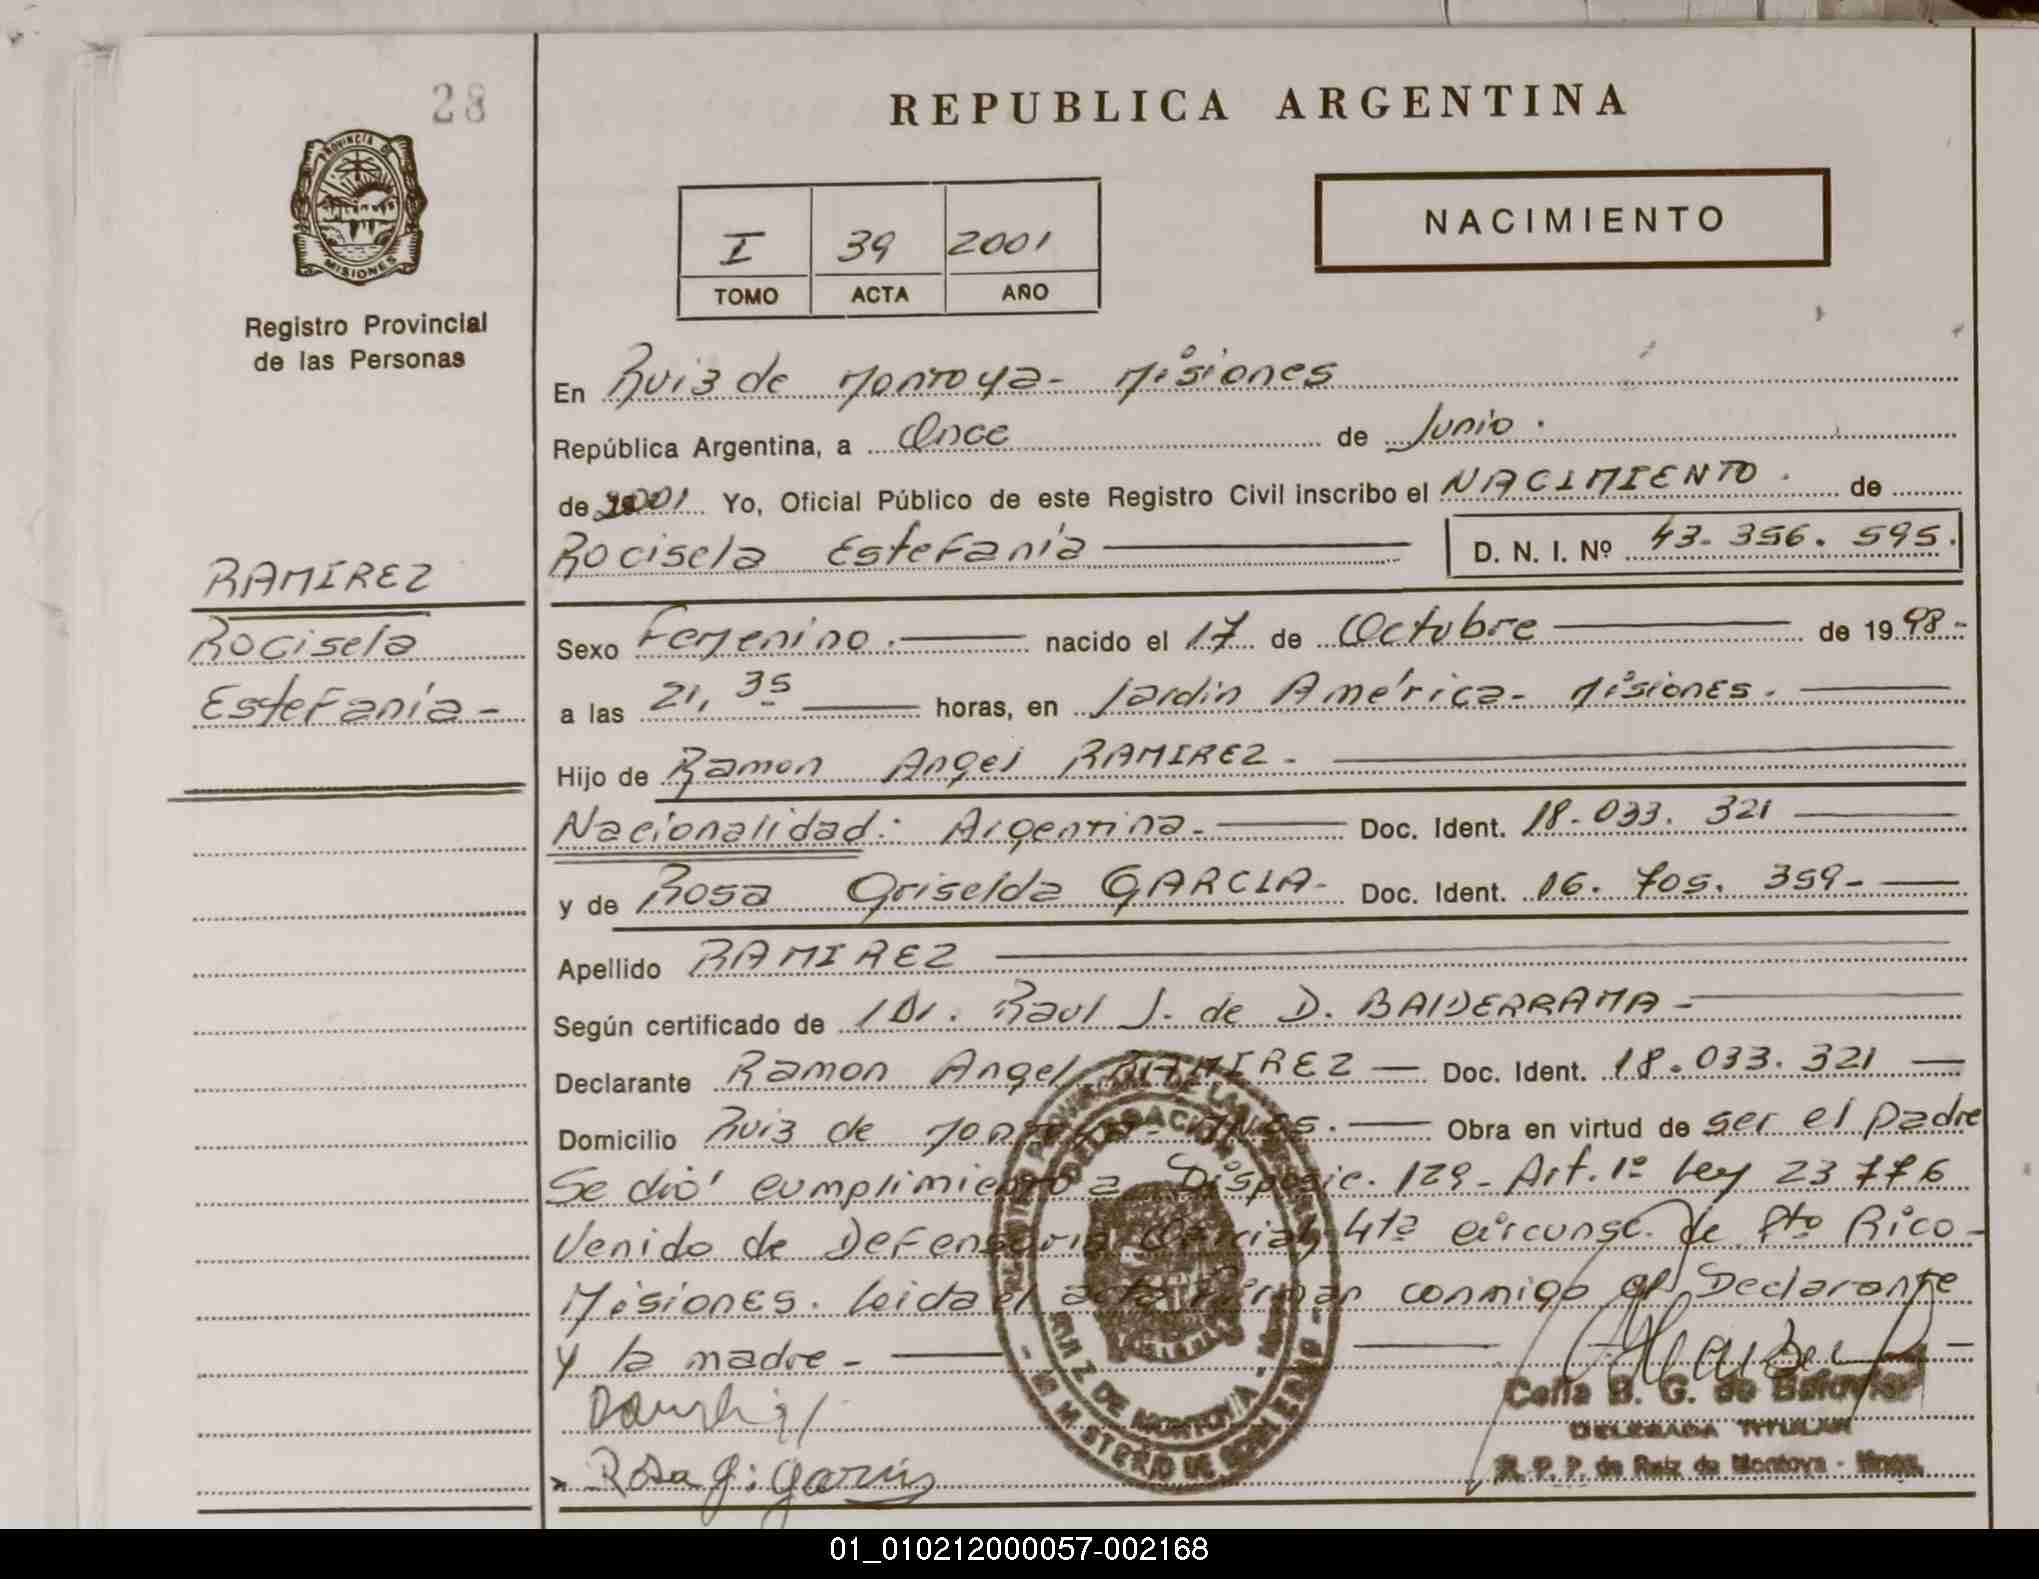 28
REPUBLICA ARGENTINA
PROVINCIA DE
MISIONES
Registro Provincial
de las Personas
I 39 2001
TOMO ACTA AÑO
NACIMIENTO
En Ruiz de Montoya - Misiones
República Argentina, a Once de Junio.
de 2001 Yo, Oficial Público de este Registro Civil inscribo el NACIMIENTO. de
Rocisela Estefanía D. N. I. Nº 43.356.595.
RAMIREZ
Rocisela
Estefanía -
Sexo Femenino. nacido el 17 de Octubre de 1998-
a las 21,35 horas, en Jardín América - Misiones.
Hijo de Ramon Angel RAMIREZ -
Nacionalidad: Argentina - Doc. Ident. 18.033.321
y de Rosa Griselda GARCIA - Doc. Ident. 16.705.359 -
Apellido RAMIREZ
Según certificado de Dr. Raul J. de D. BALDERRAMA -
Declarante Ramon Angel RAMIREZ Doc. Ident. 18.033.321
Domicilio Ruiz de Montoya - Mnes. Obra en virtud de ser el padre
Se dió cumplimiento a Disposic. 129 - Art. 1º Ley 23776
Venido de Defensoria Oficial, 4ta circunsc. de Pto Rico -
Misiones. leida el acta firman conmigo el Declarante
y la madre -
Rosa G. Garcia
Celia B. G. de
DELEGADA TITULAR
R. P. P. de Ruiz de Montoya - Mnes.
RUIZ DE MONTOYA
MINISTERIO DE
01_010212000057-002168